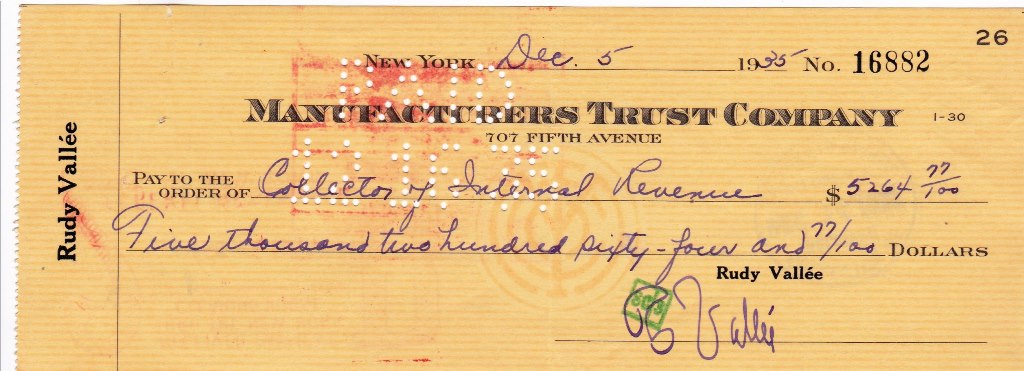 26
NEW YORK Dec. 5 1935 No. 16882
MANUFACTURERS TRUST COMPANY 1-30
707 FIFTH AVENUE
PAY TO THE ORDER OF Collector of Internal Revenue $5264 77/100
Five thousand two hundred sixty-four and 77/100 DOLLARS
Rudy Vallée
R Vallée
Rudy Vallée
PAID